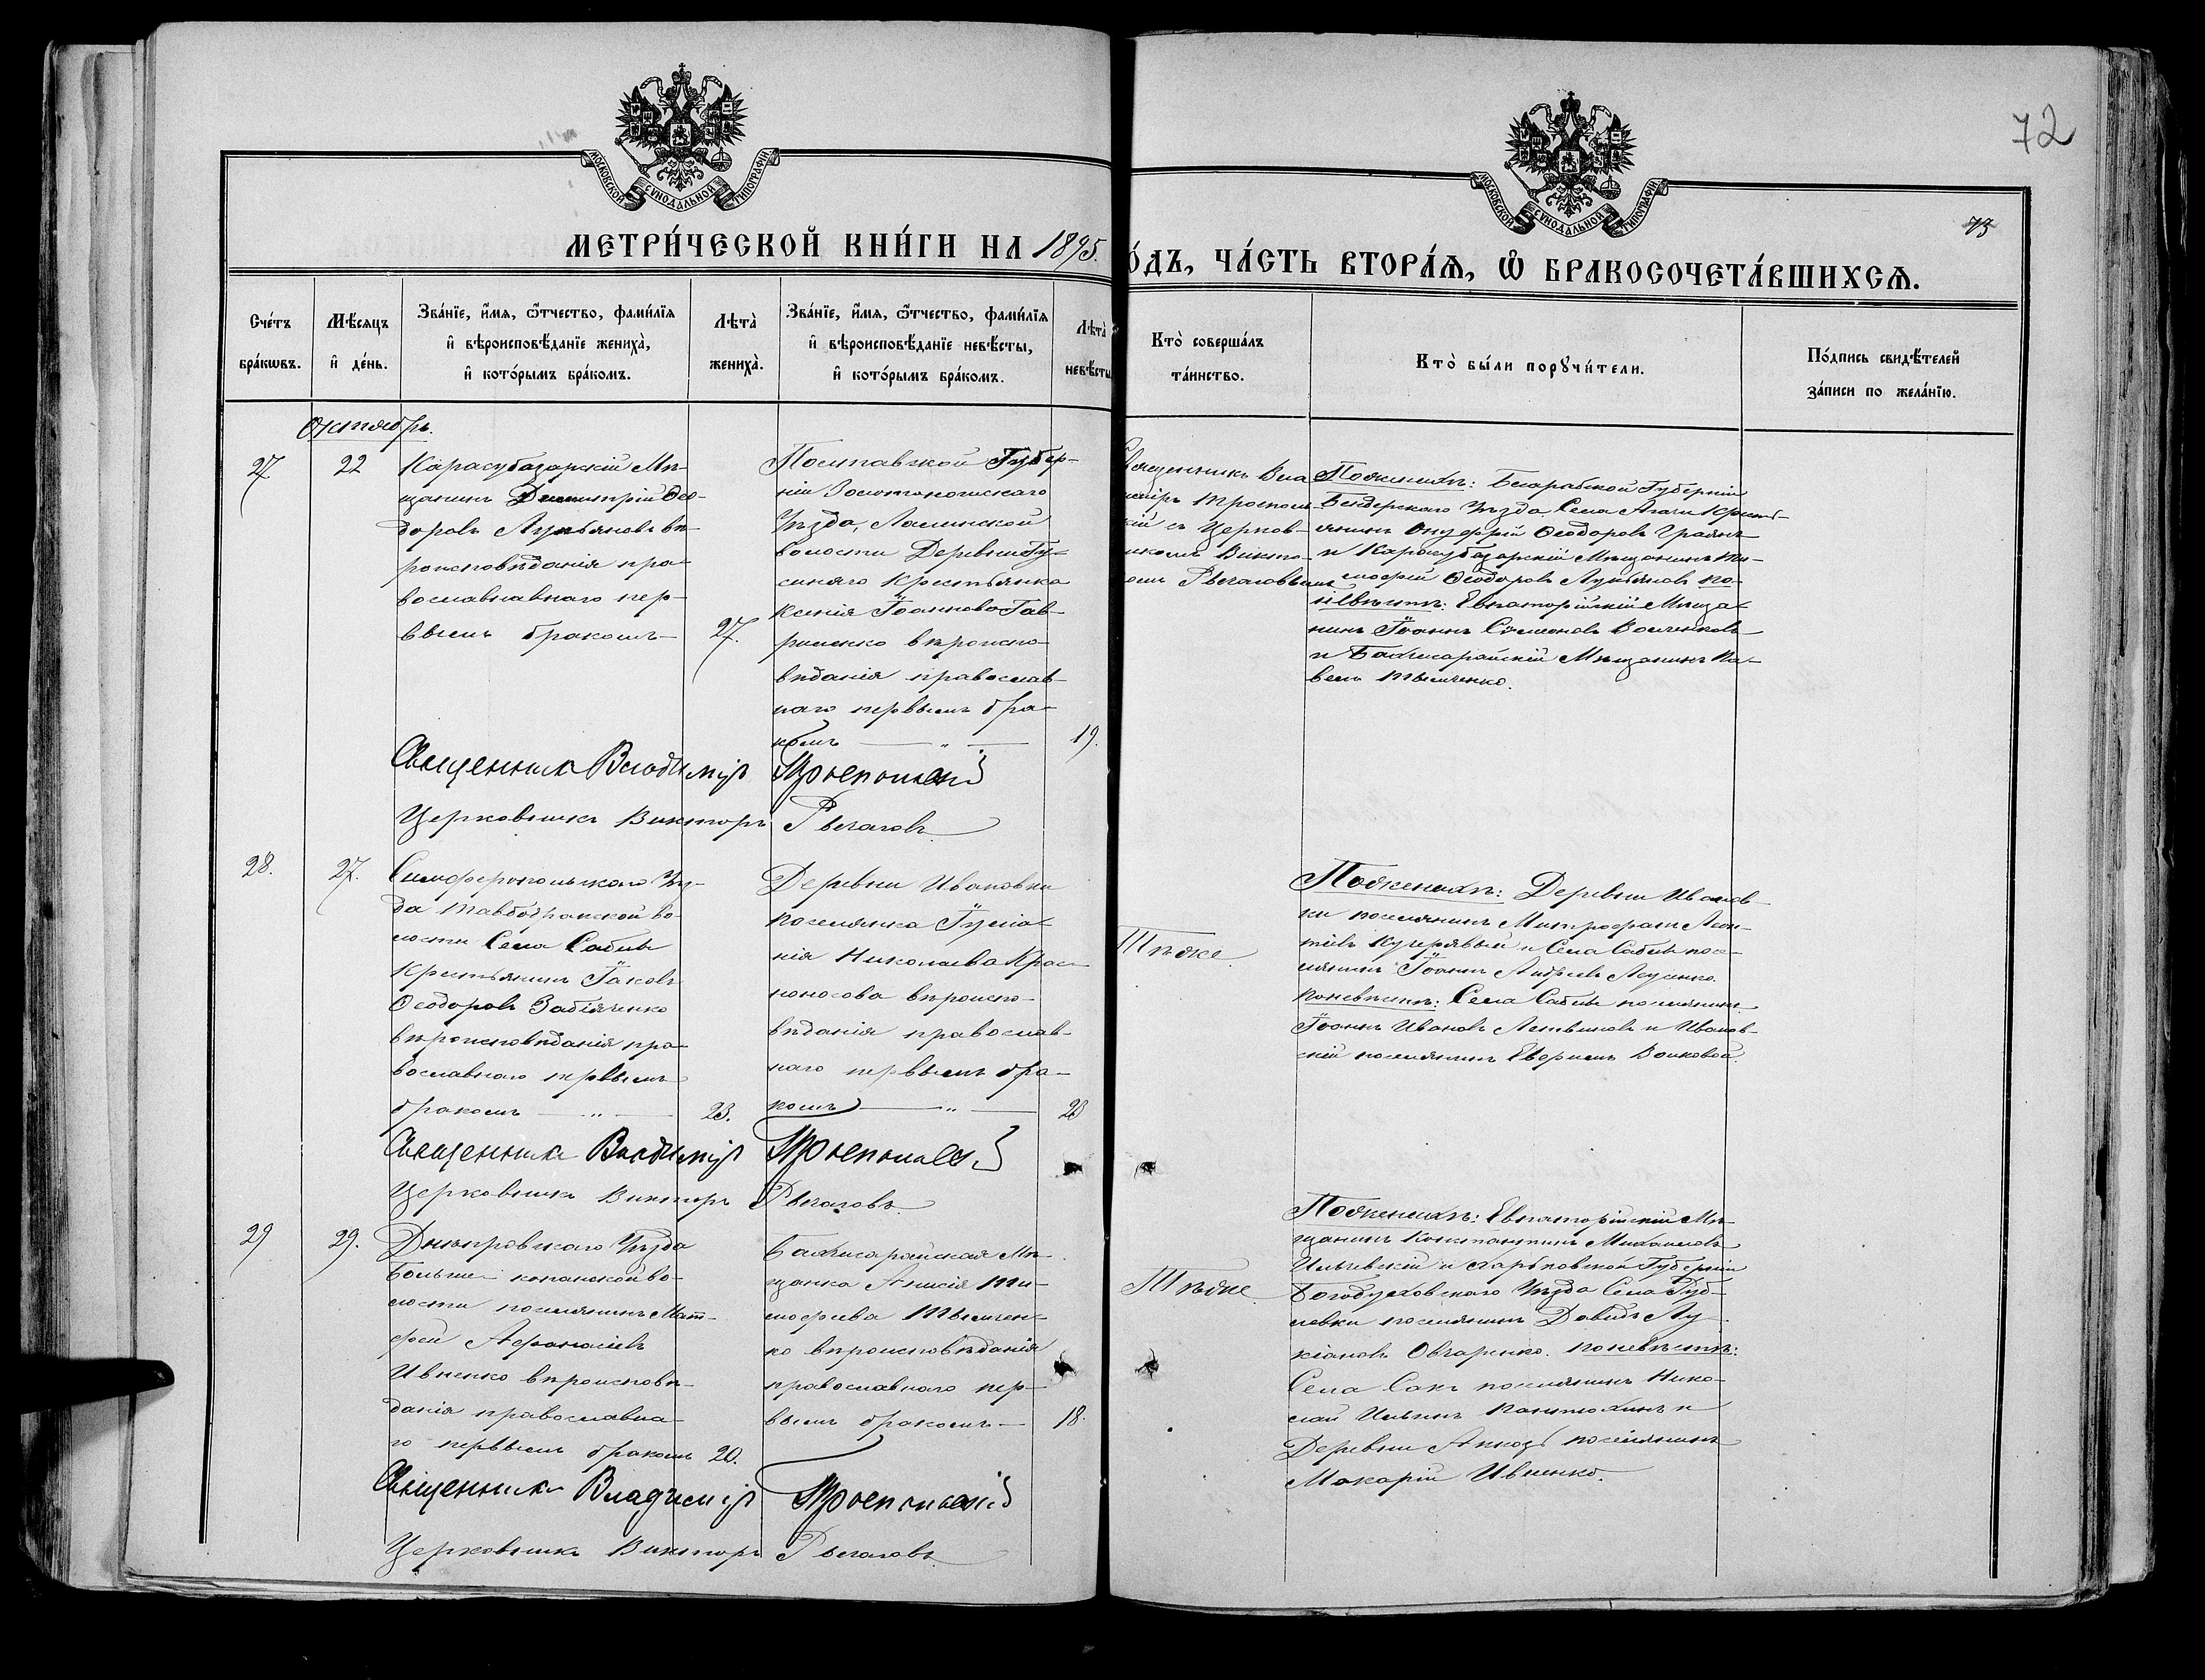 72
73
МОСКОВСКОЙ СѴНОДАЛЬНОЙ ТИПОГРАФІИ
МОСКОВСКОЙ СѴНОДАЛЬНОЙ ТИПОГРАФІИ
МЕТРИ́ЧЕСКОЙ КНИ́ГИ НА 1895.
О́ДЪ, ЧА́СТЬ ВТОРА́Ѧ, Ѡ҆ БРАКОСОЧЕТА́ВШИХСѦ.
Сче́тъ
бра́кѡвъ.
Мѣ́сяцъ
и҆ де́нь.
Зва́нїе, и҆́мѧ, ѻ҆́тчество, фами́лїѧ
и҆ вѣроисповѣ́данїе жениха̀,
и҆ кото́рымъ бра́комъ.
Лѣта̀
жениха̀.
Зва́нїе, и҆́мѧ, ѻ҆́тчество, фами́лїѧ
и҆ вѣроисповѣ́данїе невѣ́сты,
и҆ кото́рымъ бра́комъ.
Лѣта̀
невѣ́сты
Кто̀ соверша́лъ
та́инство.
Кто̀ бы́ли порꙋчи́тели.
По́дпись свидѣ́телей
за́писи по жела́нїю.
Октябрь.
27
22
Карасубазарскій Мѣ-
щанинъ Димитрій Ѳео-
доровъ Лукьяновъ вѣ-
роисповѣданія пра-
вославнаго пер-
вымъ бракомъ
27.
Полтавской Губер-
ніи Золотоношскаго
Уѣзда,
волости Деревни Гу-
синаго Крестьянка
Ксенія Іоаннова Гав-
риленко вѣроиспо-
вѣданія православ-
наго первымъ бра-
комъ — „ —
19.
Священникъ Вла
диміръ Тросполь
кій съ Церков-
никомъ Викто-
ромъ Рвачовымъ
По женихѣ: Бесарабской Губерніи
Бендерскаго Уѣзда Села Кресть-
янинъ Онуфрій Ѳеодоровъ
и Карасубазарскій Мѣщанинъ Ти-
мофей Ѳеодоровъ Лукьяновъ по
невѣстѣ: Евпаторійскій Мѣща-
нинъ Іоаннъ Сѵмеоновъ Волченковъ
и Бахчисарайскій Мѣщанинъ Па-
велъ Тымченко.
Священникъ Владиміръ
Церковникъ Викторъ
28.
27.
Симферопольскаго Уѣз-
да Тавбодракской во-
лости Села Саблы
Крестьянинъ Іаковъ
Ѳеодоровъ Забіяченко
вѣроисповѣданія пра-
вославнаго первымъ
бракомъ — „ —
23.
Деревни Ивановки
поселянка Іуліа-
нія Николаева Крас-
ноносова вѣроиспо-
вѣданія православ-
наго первымъ бра-
комъ — „ —
20
Тѣже
По женихѣ: Деревни Иванов-
ки поселянинъ Митрофанъ Леон-
тіевъ Кучерявый и Села Саблы посе-
лянинъ Іоаннъ Андреевъ
По невѣстѣ: Села Саблы поселянинъ
Іоаннъ Ивановъ Литвиновъ и Иванов-
скій поселянинъ Волковой.
Священникъ Владиміръ
Церковникъ Викторъ
29
29.
Днѣпровскаго Уѣзда
Больше-копанской во-
лости поселянинъ Мат-
фей Аѳанасіевъ
Ивненко вѣроисповѣ-
данія православна-
го первымъ бракомъ
20.
Бахчисарайская Мѣ-
щанка Анисія Ти-
мофеева Тымчен-
ко вѣроисповѣданія
православнаго пер-
вымъ бракомъ —
18.
Тѣже
По женихѣ: Евпаторійскій Мѣ-
щанинъ Константинъ Михайловъ
Ильчевскій и Харьковской Губерніи
Богодуховскаго Уѣзда Села Руб-
левки поселянинъ Давидъ Лу-
кіановъ Овчаренко. По невѣстѣ:
Села Сакъ поселянинъ Нико-
лай Ильинъ Пантюхинъ и
Деревни поселянинъ
Макарій Ивненко.
Священникъ Владиміръ
Церковникъ Викторъ